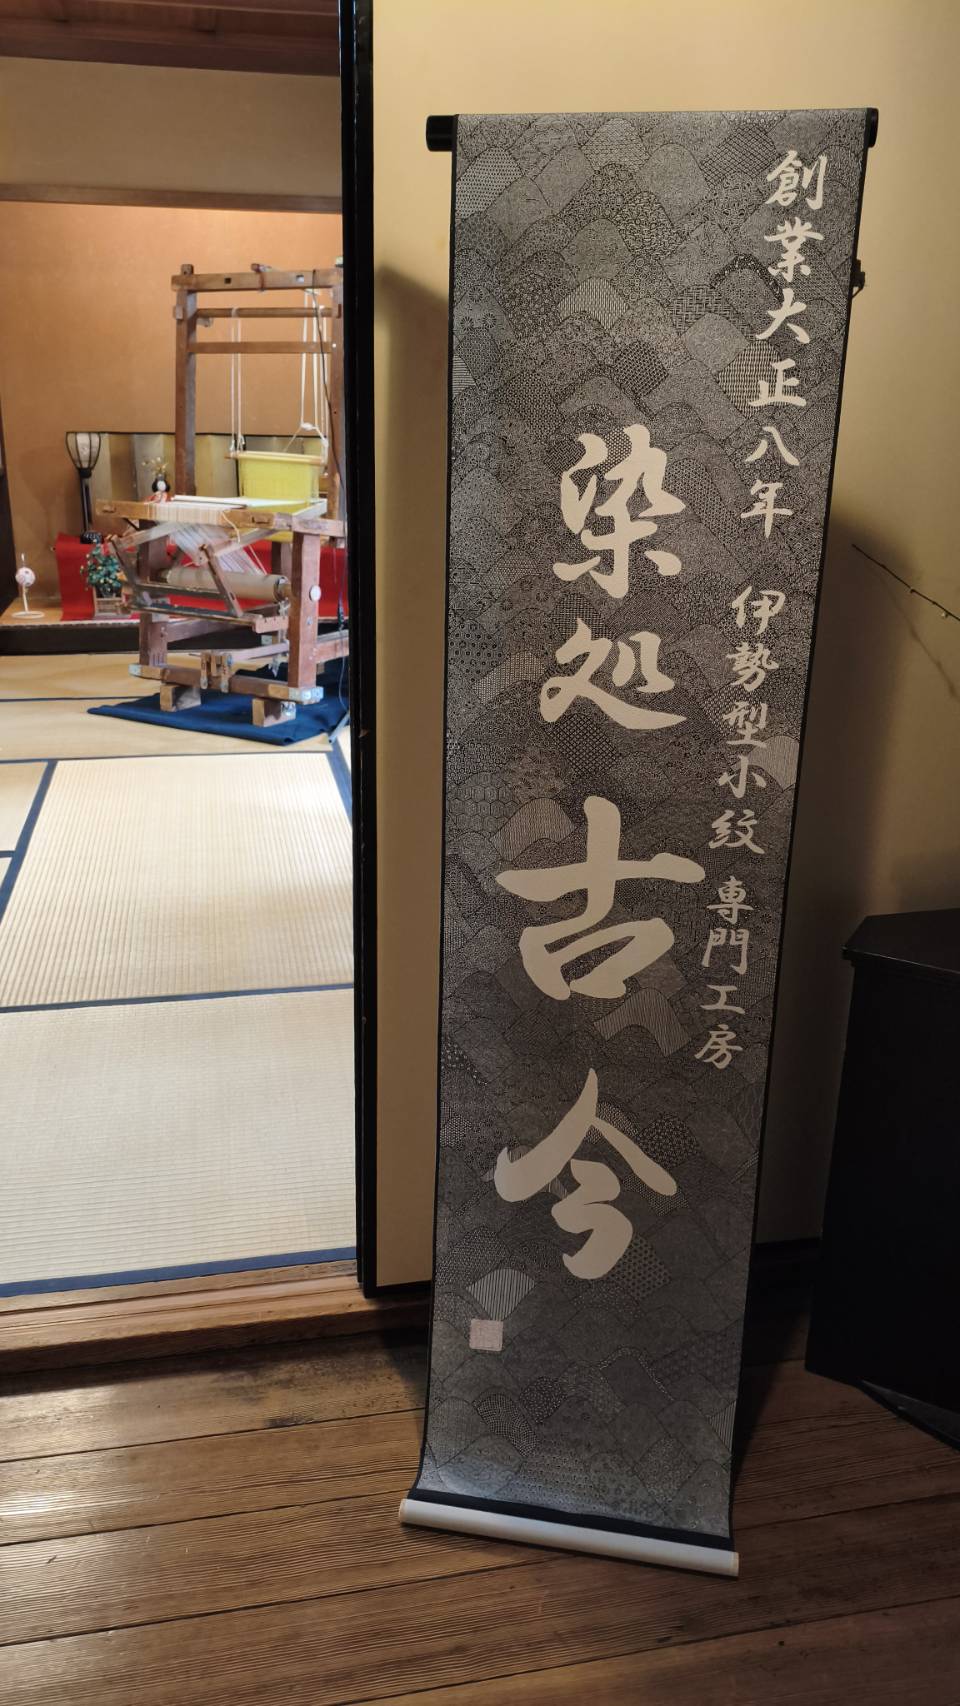 創業大正八年 伊勢型小紋 専門工房
染処古今